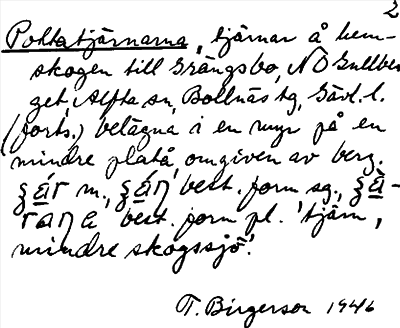 2
Pottatjärnarna, tjärnar å hem-
skogen till Grängsbo, NO Gullber
get, Alfta sn, Bollnäs tg, Gävl. l.
(forts.) belägna i en myr på en
mindre platå, omgiven av berg.
m., best. form sg.,
best. form pl. 'tjärn,
mindre skogssjö'.
T. Birgerson 1946